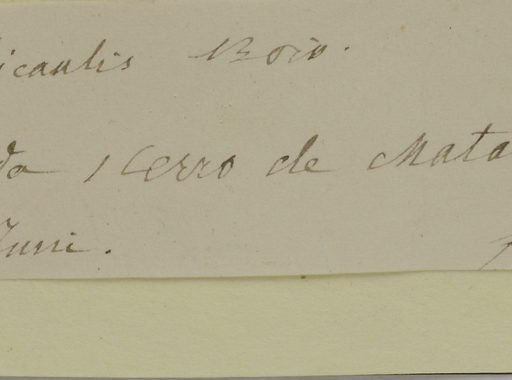 icaulis Bois.
da Cerro de Mata
Juni.